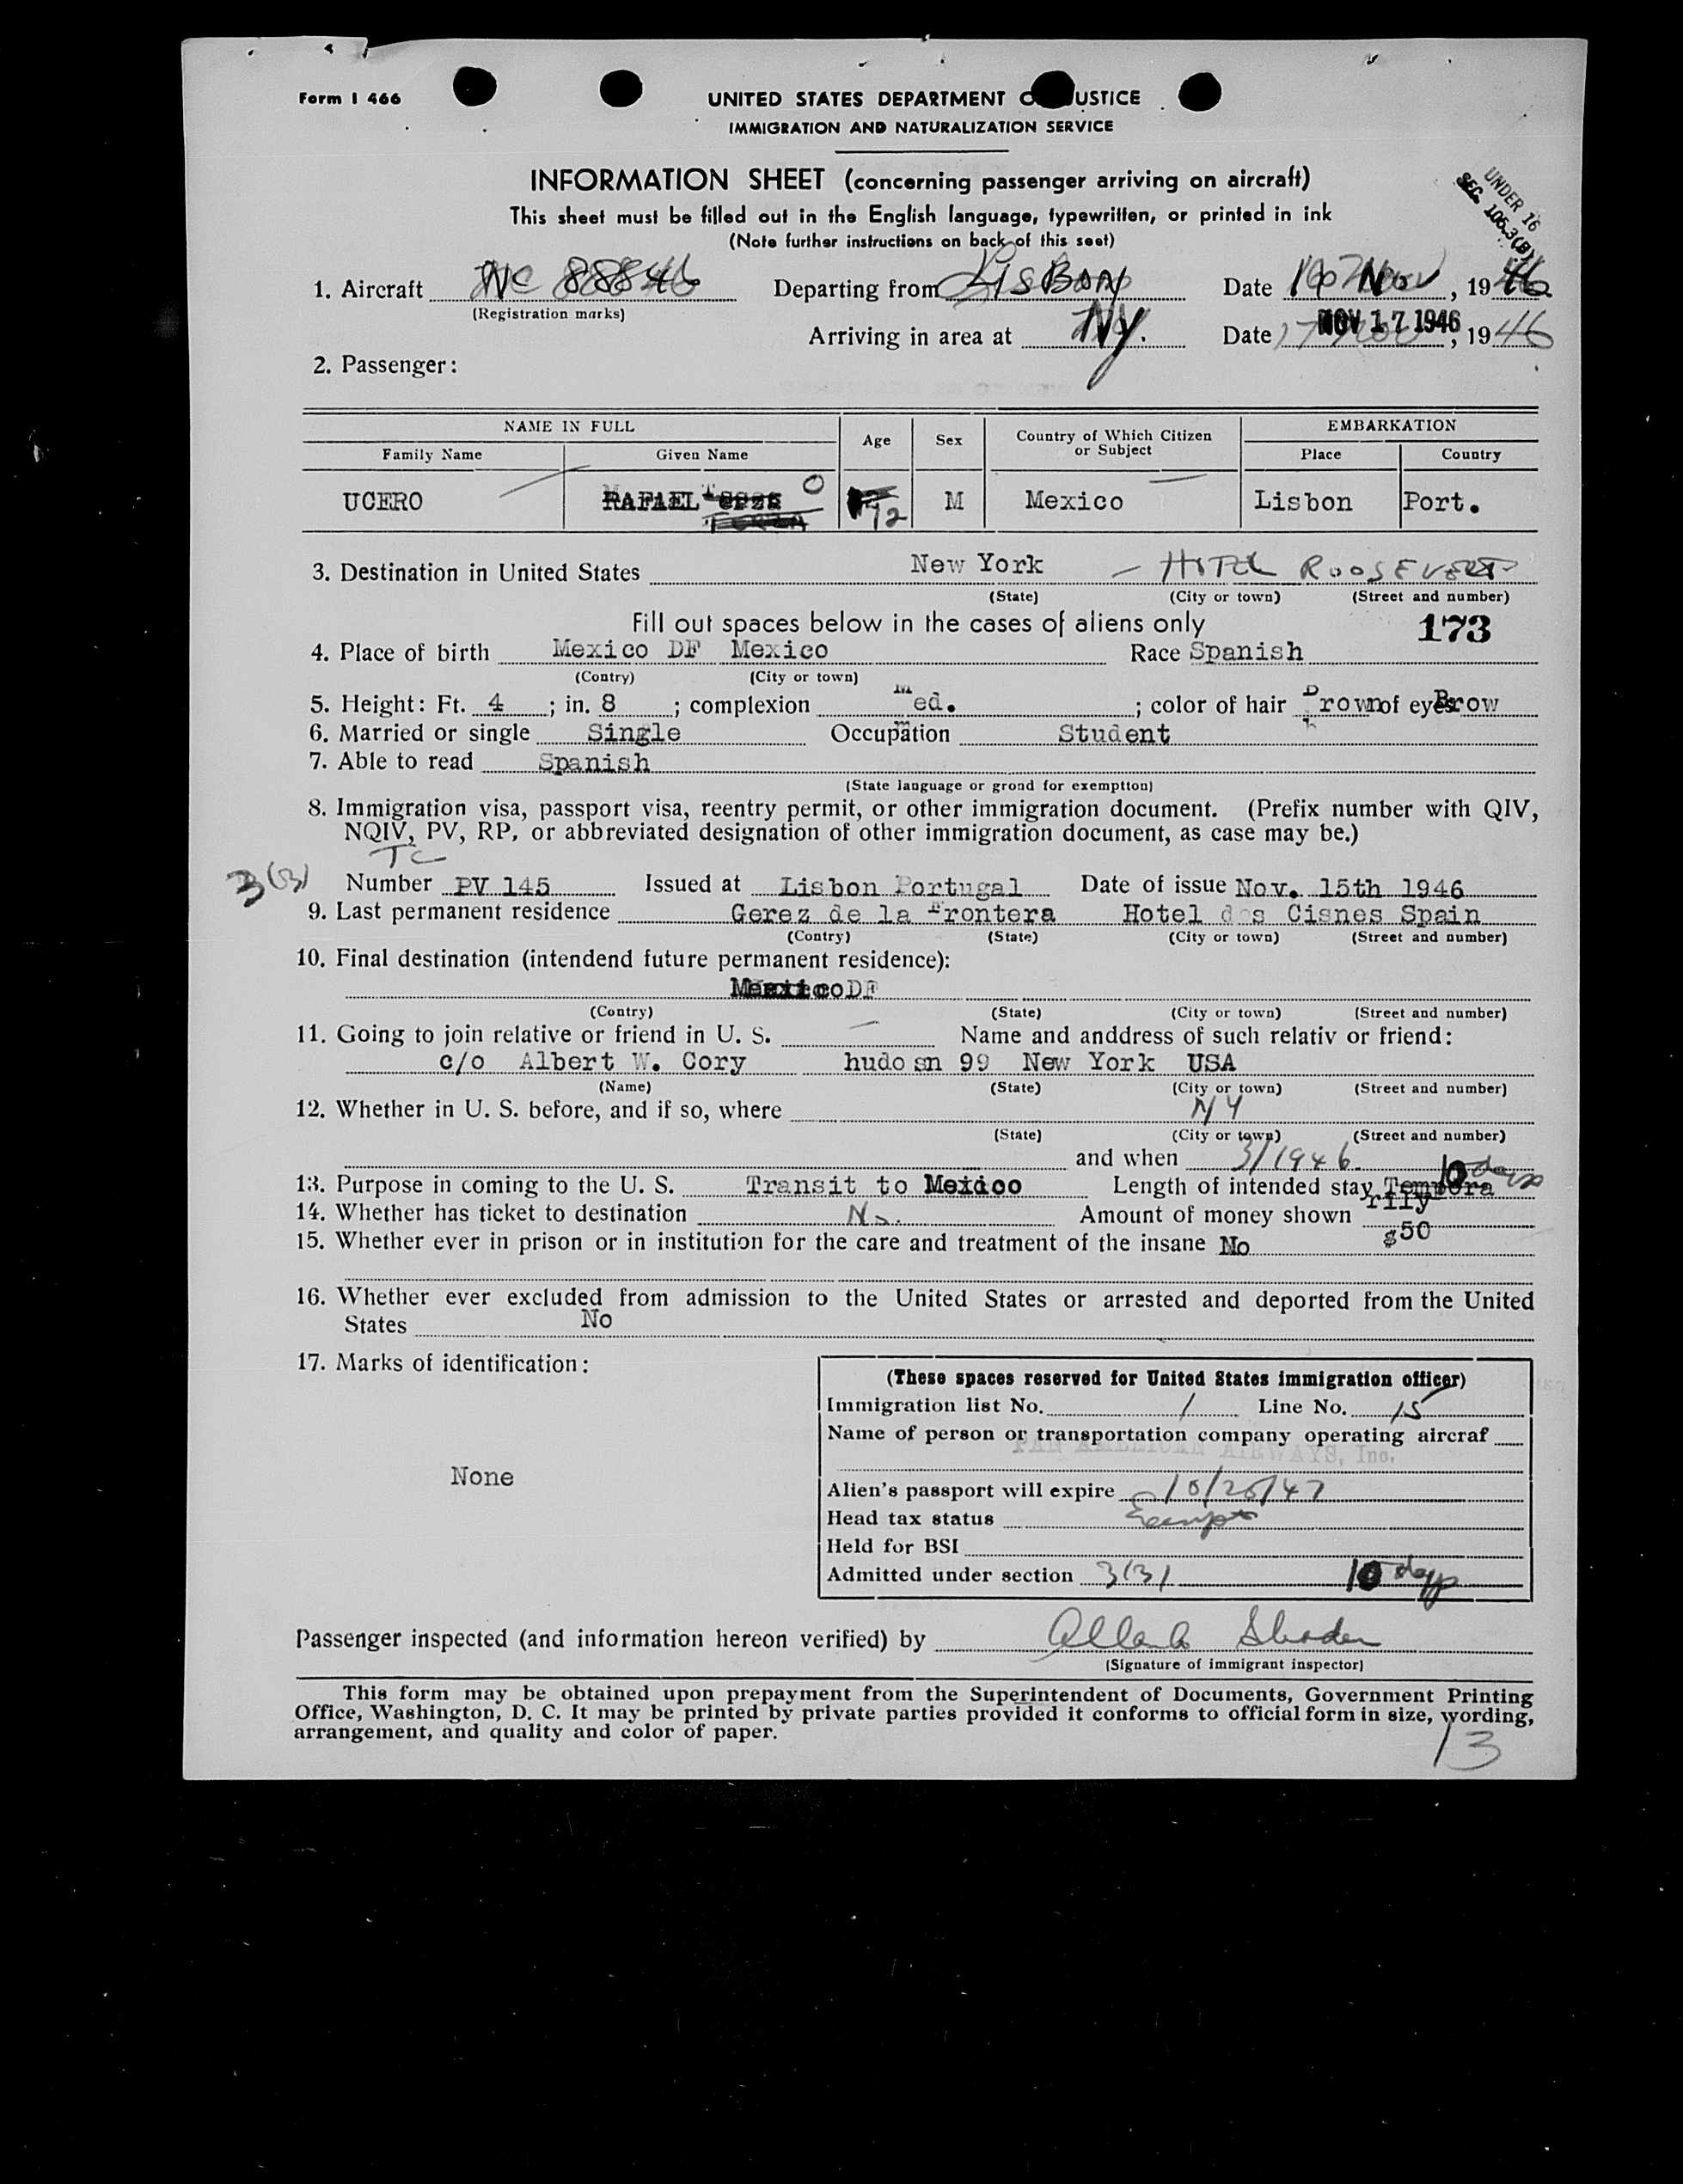 Form I 466
UNITED STATES DEPARTMENT O USTICE
IMMIGRATION AND NATURALIZATION SERVICE
INFORMATION SHEET (concerning passenger arriving on aircraft)
This sheet must be filled out in the English language, typewritten, or printed in ink
(Note further instructions on back of this seet)
UNDER 16
SEC. 106.3(B)
1. Aircraft NC 88846 Departing from LISBON Date 16 Nov, 1946
(Registration marks)
Arriving in area at NY. Date NOV 17 1946, 1946
2. Passenger:
NAME IN FULL Age Sex Country of Which Citizen or Subject EMBARKATION
Family Name Given Name Place Country
UCERO RAFAEL O 12 M Mexico Lisbon Port.
3. Destination in United States New York — HOTEL ROOSEVELT
(State) (City or town) (Street and number)
Fill out spaces below in the cases of aliens only 173
4. Place of birth Mexico DF Mexico Race Spanish
(Contry) (City or town)
5. Height: Ft. 4; in. 8; complexion Med.; color of hair Brown of eyes Brow
6. Married or single Single Occupation Student
7. Able to read Spanish
(State language or grond for exemption)
8. Immigration visa, passport visa, reentry permit, or other immigration document. (Prefix number with QIV,
NQIV, PV, RP, or abbreviated designation of other immigration document, as case may be.)
TC
3(3) Number PV 145 Issued at Lisbon Portugal Date of issue Nov. 15th 1946
9. Last permanent residence Gerez de la Frontera Hotel d s Cisnes Spain
(Contry) (State) (City or town) (Street and number)
10. Final destination (intendend future permanent residence):
Mexico DF
(Contry) (State) (City or town) (Street and number)
11. Going to join relative or friend in U. S. — Name and anddress of such relativ or friend:
c/o Albert W. Cory hudosn 99 New York USA
(Name) (State) (City or town) (Street and number)
12. Whether in U. S. before, and if so, where NY
(State) (City or town) (Street and number)
and when 3/1946
13. Purpose in coming to the U. S. Transit to Mexico Length of intended stay Temporarily 10 days
14. Whether has ticket to destination No. Amount of money shown $50
15. Whether ever in prison or in institution for the care and treatment of the insane No
16. Whether ever excluded from admission to the United States or arrested and deported from the United
States No
17. Marks of identification:
None
(These spaces reserved for United States immigration officer)
Immigration list No. 1 Line No. 15
Name of person or transportation company operating aircraf
PAN AMERICAN AIRWAYS, Inc.
Alien's passport will expire 10/26/47
Head tax status Exempt
Held for BSI
Admitted under section 3(3) 10 days
Passenger inspected (and information hereon verified) by
(Signature of immigrant inspector)
This form may be obtained upon prepayment from the Superintendent of Documents, Government Printing
Office, Washington, D. C. It may be printed by private parties provided it conforms to official form in size, wording,
arrangement, and quality and color of paper.
13